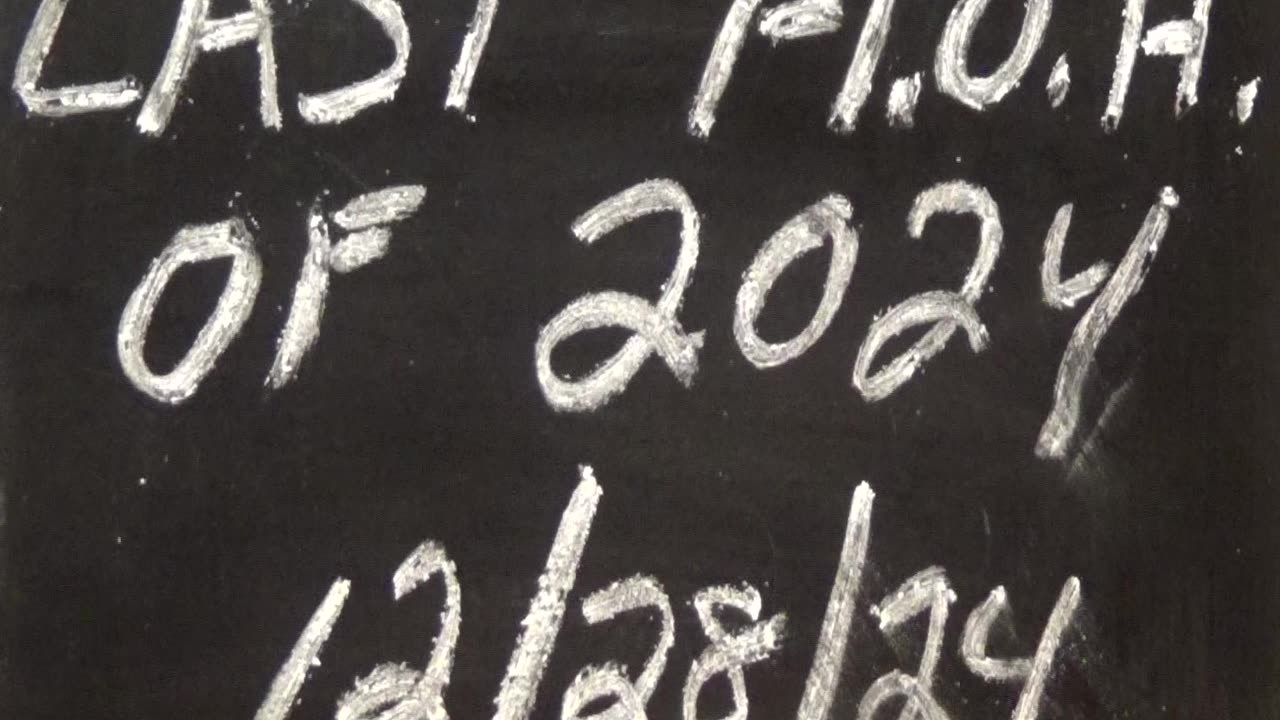 LAST F.I.O.A.
OF 2024
12/28/24